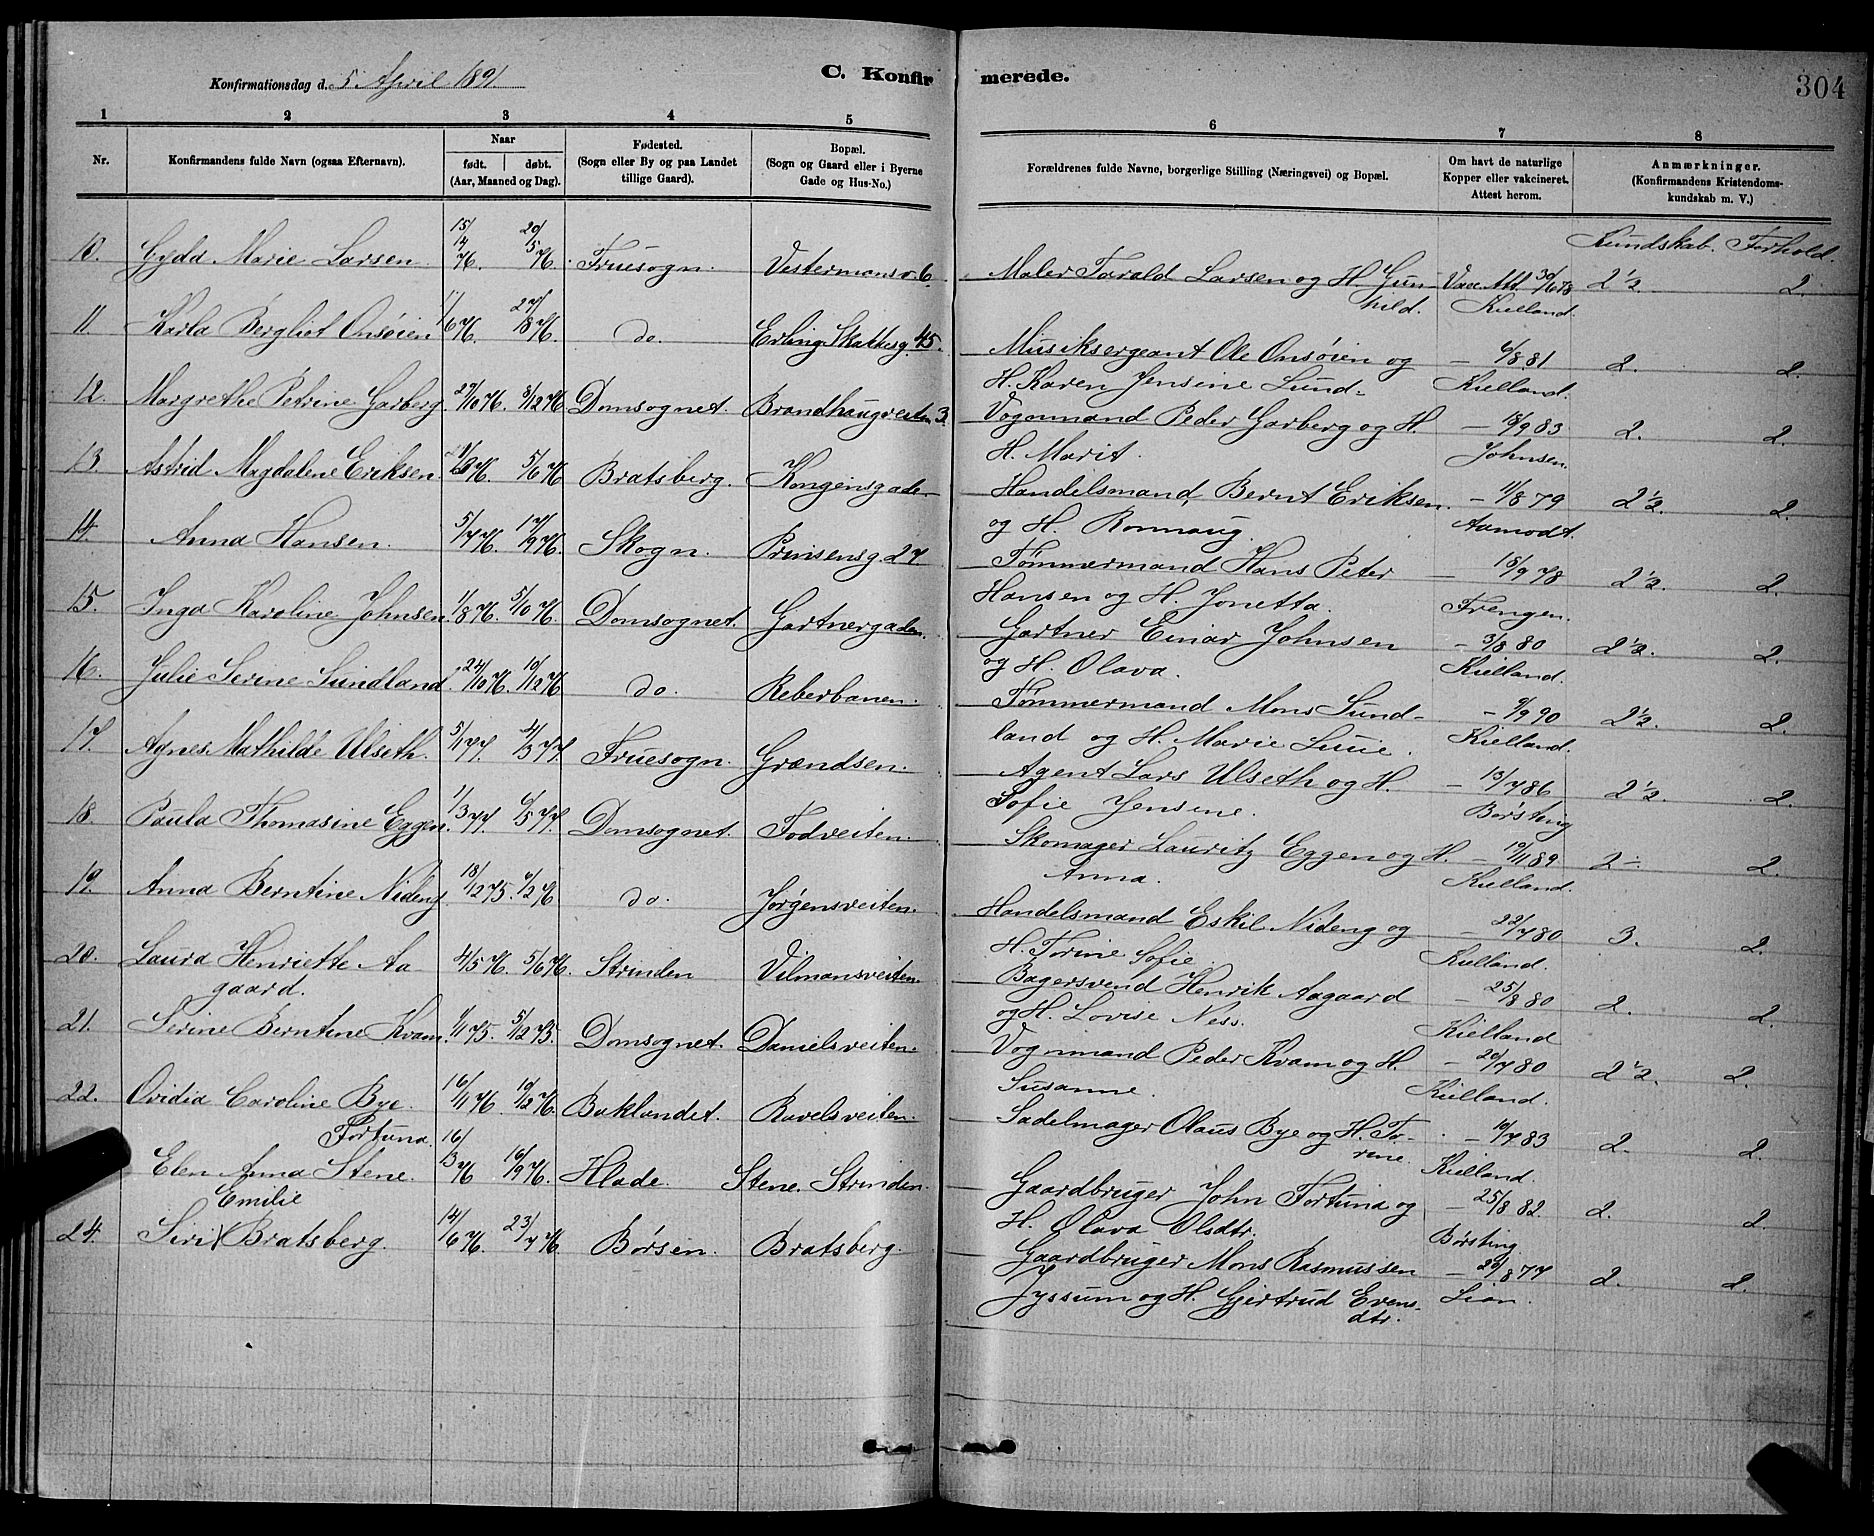 304
Konfirmationsdag d. 5 April 1891.
C. Konfirmerede.
1 2 3 4 5 6 7 8
Nr.
Konfirmandens fulde Navn (ogsaa Efternavn).
Naar
født. døbt.
(Aar, Maaned og Dag).
Fødested.
(Sogn eller By og paa Landet
tillige Gaard).
Bopæl.
(Sogn og Gaard eller i Byerne
Gade og Hus-No.)
Forældrenes fulde Navne, borgerlige Stilling (Næringsvei) og Bopæl.
Om havt de naturlige
Kopper eller vakcineret.
Attest herom.
Anmærkninger.
(Konfirmandens Kristendoms-
kundskab m. V.)
Kundskab. Forhold.
10. Gyda Marie Larsen 15/4 76. 20/5 76. Fruesogn. 6. Maler Tarald Larsen og H. Gun- Vacc. Att. 30/6 78 2 1/2. 2.
hild. Kielland.
11. Karla Bergliot Onsøien 76. 27/8 76. do. Erling Skakkesg. 45. Musiksergeant Ole Onsøien og – 6/8 81 2. 2.
H. Karen Jensine Lund. Kielland.
12. Margrethe Petrine Garberg. 27/10 76. 3/12 76. Domsognet. Brandhaugveiten 3. Vognmand Peder Garberg og H. – 18/9 83 2. 2.
H. Marit. Johnsen.
13. Astrid Magdalene Eriksen. 76. 5/6 76 Bratsberg. Kongensgade. Handelsmand Bernt Eriksen. – 11/8 79 2 1/2. 2.
og H. Ronnaug. Aamodt.
14. Anna Hansen. 5/7 76. 17/9 76. Skogn. Prinsensg. 27. Tømmermand Hans Peter – 18/9 78 2 1/2. 2.
Hansen og H. Jonetta. Frengen.
15. Inga Karoline Johnsen. 1/8 76. 5/10 76. Domsognet. Gartnergaden. Gartner Einar Johnsen – 3/8 80 2 1/2. 2.
og H. Olava. Kielland.
16. Julie Serine Sundland. 24/10 76. 10/12 76. do. Reberbanen. Tømmermand Mons Sund- – 9/9 90 2 1/2. 2.
land og H. Marie Kielland.
17. Agnes Mathilde Ulseth. 5/1 77. 4/3 77. Fruesogn. Grændsen. Agent Lars Ulseth og H. – 13/7 86 2 1/2. 2.
Sofie Jensine. Børsting
18. Paula Thomasine Eggen. 1/3 77. 6/5 77. Domsognet. Fodveiten. Skomager Lauritz Eggen og H. – 19/11 89 2 ÷. 2.
Anna. Kielland.
19. Anna Berntine Nideng 18/12 75. 6/2 76 do. Jørgensveiten. Handelsmand Eskil Nideng og – 22/7 80 3. 2.
H. Torine Sofie. Kielland.
20. Laura Henriette Aa 4/5 76. 5/6 76. Strinden Vilmansveiten. Bagersvend Henrik Aagaard – 25/8 80 2. 2.
gaard. og H. Lovise Ness. Kielland
21. Serine Berntine Kvam. 1/11 75. 5/12 75. Domsognet. Danielsveiten. Vognmand Peder Kvam og H. – 20/7 80 2 1/2. 2.
Susanne. Kielland.
22. Ovidia Caroline Bye. 16/11 76. 10/12 76. Baklandet. Ravelsveiten. Sadelmager Olaus Bye og H. To- – 10/7 83 2. 2.
rene. Kielland.
Fortuna.
Elen Anna Stene. 16/3 76 16/9 76. Hlade. Stene. Strinden. Gaardbruger John Fortuna og – 25/8 82. 2. 2.
H. Olava Olsdtr. Børsting.
Emilie
24. Siri Bratsberg. 14/6 76. 23/7 76. Børsen. Bratsberg. Gaardbruger Mons Rasmussen – 20/8 77 2. 2.
Jyssum og H. Gjertrud Evens- Lian.
dtr.